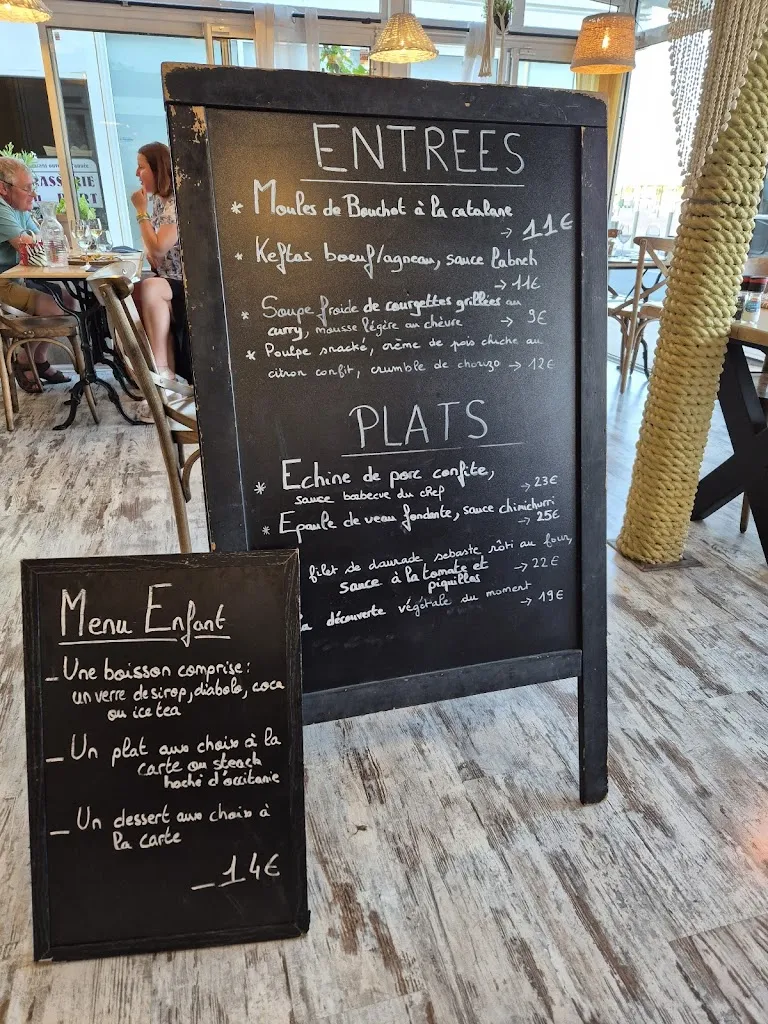 ENTREES
* Moules de Bouchot à la catalane
→ 11€
* Keftas boeuf/agneau, sauce labneh
→ 11€
* Soupe froide de courgettes grillées au
curry, mousse légère au chèvre → 9€
* Poulpe snacké, crème de pois chiche au
citron confit, crumble de chorizo → 12€
PLATS
* Echine de porc confite,
sauce barbecue du chef → 23€
* Epaule de veau fondante, sauce chimichurri
→ 25€
filet de daurade sebaste rôti au four,
sauce à la tomate et → 22€
piquillos
la découverte végétale du moment
→ 19€
Menu Enfant
– Une boisson comprise :
un verre de sirop, diabolo, coca
ou ice tea
– Un plat aux choix à la
carte ou steack
haché d'occitanie
– Un dessert aux choix à
la carte
– 14€